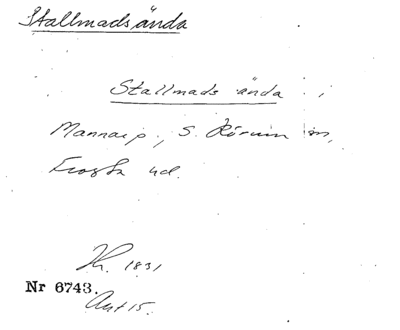 Stallmads ända
Stallmads ända i
Mannarp, S. Rörum sn,
Frosta hd.
1831
Nr 6743.
Akt 15.